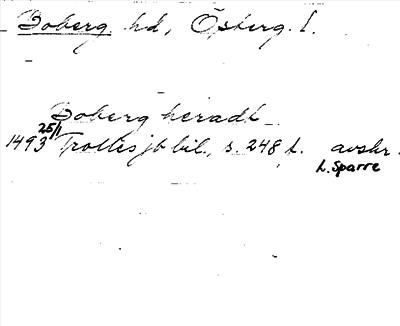 Boberg hd, Österg. l.
Boberg heradt
25/1
1493 Trolles jb bil., s. 248 f. avskr.
L. Sparre